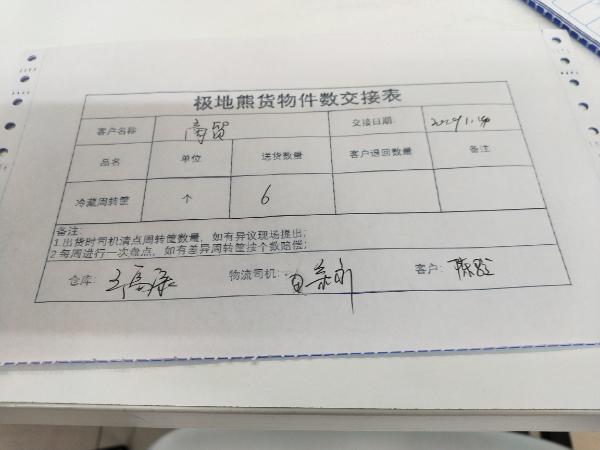 极地熊货物件数交接表
客户名称 商贸 交接日期:
品名 单位 送货数量 客户退回数量 备注
冷藏周转筐 个 6
备注:
1.出货时司机清点周转筐数量,如有异议现场提出;
2.每周进行一次盘点,如有差异周转筐按个数赔偿;
仓库: 物流司机: 客户: